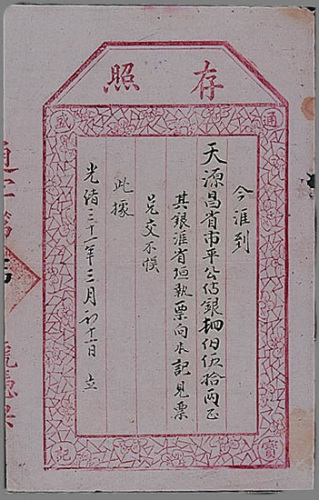 存照
通
今滙到
天源昌省市平公估銀捌伯伍拾兩正
其銀滙省垣執票向本記見票
兌交不悞
此據
光緒三十一年三月初 日立
寶
記